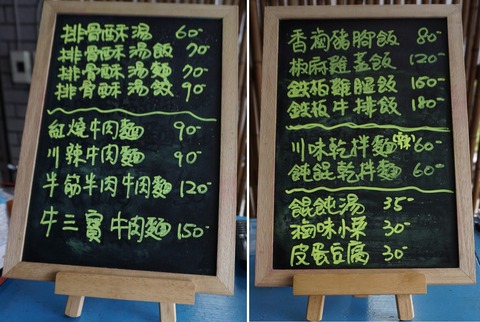 排骨酥湯 60-
排骨酥湯飯 70-
排骨酥湯麵 70-
排骨酥湯餃 90-
紅燒牛肉麵 90-
川辣牛肉麵 90-
牛筋半肉牛肉麵 120-
牛三寶牛肉麵 150-
香滷豬腳飯 80-
椒麻雞蓋飯 120-
鉄板雞腿飯 160-
鉄板牛排飯 180-
川味乾拌麵 60-
餛飩乾拌麵 60-
餛飩湯 35-
滷味小菜 30-
皮蛋豆腐 30-